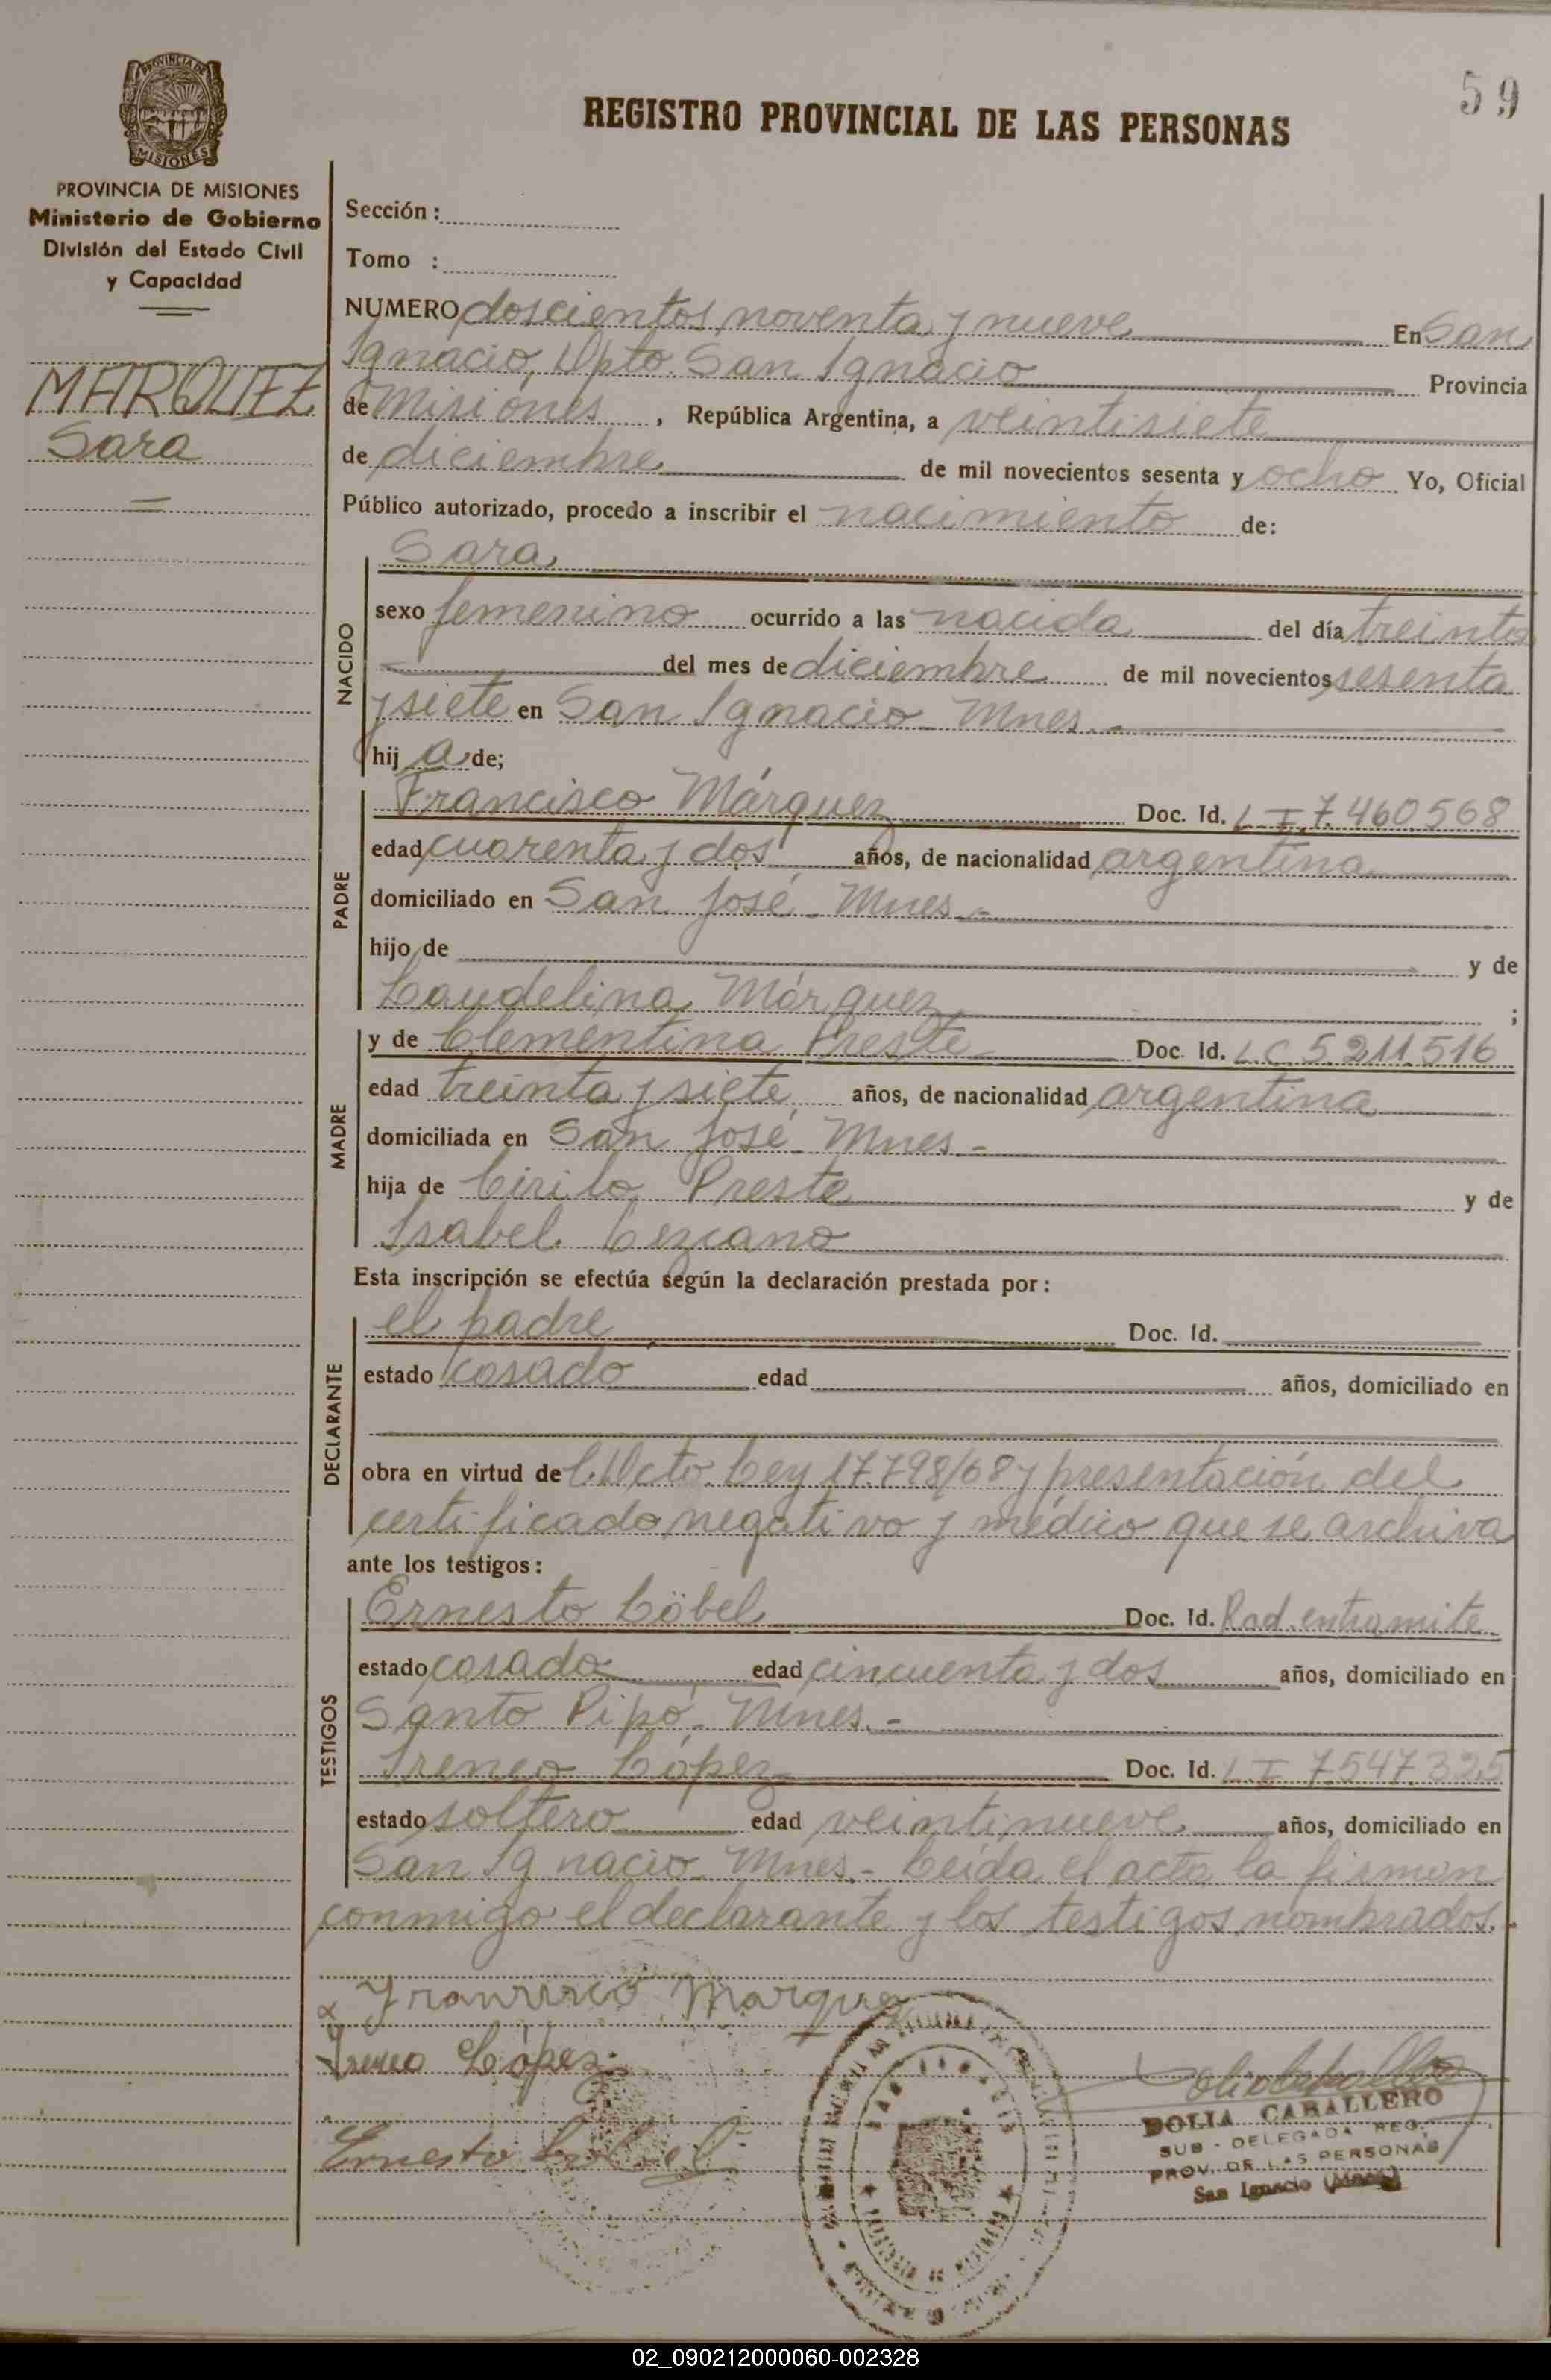 59
REGISTRO PROVINCIAL DE LAS PERSONAS
PROVINCIA DE
MISIONES
PROVINCIA DE MISIONES
Ministerio de Gobierno
División del Estado Civil
y Capacidad
MARQUEZ
Sara
Sección:
Tomo :
NUMERO doscientos noventa y nueve En San
Ignacio, Dpto. San Ignacio Provincia
de Misiones, República Argentina, a veintisiete
de diciembre de mil novecientos sesenta y ocho Yo, Oficial
Público autorizado, procedo a inscribir el nacimiento de:
NACIDO
Sara
sexo femenino ocurrido a las nacida del día treinta
del mes de diciembre de mil novecientos sesenta
y siete en San Ignacio - Mnes. -
hij a de;
PADRE
Francisco Márquez Doc. Id. L I 7.460.568
edad cuarenta y dos años, de nacionalidad argentina
domiciliado en San José - Mnes -
hijo de y de
Laudelina Márquez ;
MADRE
y de Clementina Preste Doc. Id. L.C 5.211.516
edad treinta y siete años, de nacionalidad argentina
domiciliada en San José - Mnes. -
hija de Cirilo Preste y de
Isabel Lezcano
Esta inscripción se efectúa según la declaración prestada por:
DECLARANTE
el padre Doc. Id.
estado casado edad años, domiciliado en
obra en virtud de Dcto. Ley 17.798/68 y presentación del
certificado negativo y médico que se archiva
ante los testigos:
TESTIGOS
Ernesto Löbel Doc. Id. Rad. en tramite
estado casado edad cincuenta y dos años, domiciliado en
Santo Pipó - Mnes. -
Ireneo López Doc. Id. L I 7.547.325
estado soltero edad veintinueve años, domiciliado en
San Ignacio - Mnes. - Leída el acta la firman
conmigo el declarante y los testigos nombrados. -
Francisco Marquez
Ireneo López
Ernesto
DOLIA CABALLERO
SUB - DELEGADA REG.
PROV. DE LAS PERSONAS
San Ignacio (Mnes)
02_090212000060-002328